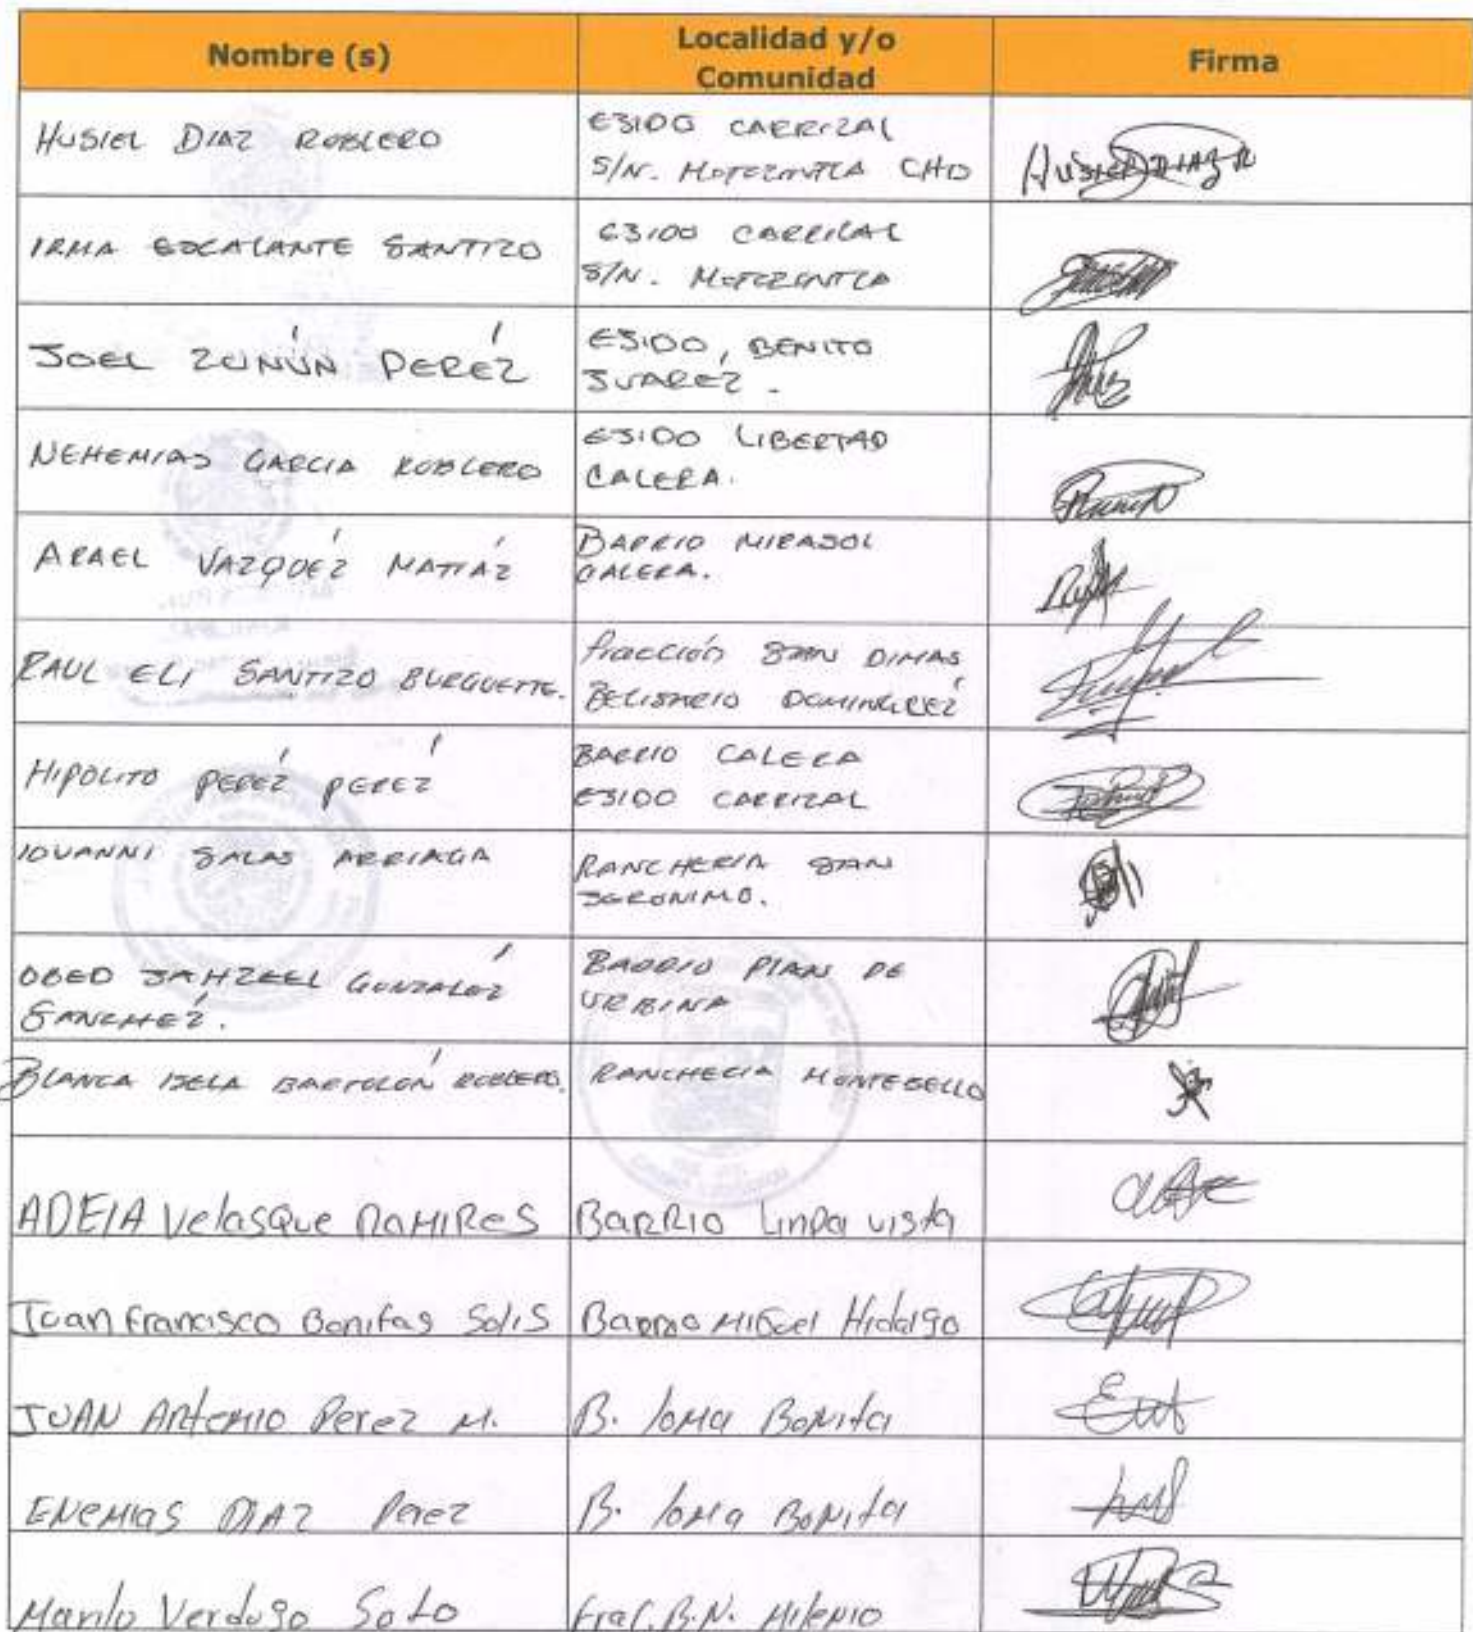 Nombre (s)
Localidad y/o
Comunidad
Firma
HUSIEL DIAZ ROBLERO
EJIDO CARRIZAL
S/N. MOTOZINTLA CHIS
HUSIEL DIAZ R
IRMA ESCALANTE SANTIZO
EJIDO CARRIZAL
S/N. MOTOZINTLA
JOEL ZUNÚN PERÉZ
EJIDO, BENITO
JUAREZ.
NEHEMIAS GARCIA ROBLERO
EJIDO LIBERTAD
CALERA.
ARAEL VAZQUÉZ MATÍAZ
BARRIO MIRASOL
CALERA.
RAUL ELI SANTIZO BURGUETTE.
fracción SAN DIMAS
BELISARIO DOMINGUÉZ
HIPOLITO PERÉZ PERÉZ
BARRIO CALERA
EJIDO CARRIZAL
IOVANNI SALAS ARRIAGA
RANCHERIA SAN
JERONIMO.
OBED JAHZEEL GONZALÉZ
SANCHÉZ.
BARRIO PLAN DE
URBINA
BLANCA ISELA BARTOLÓN ROBLERO.
RANCHERIA MONTEBELLO
ADElA VelasQue RaMIReS
BaRRIO LinDa vista
Juan francisco Bonifas Solis
Barrio MIGuel Hidalgo
JUAN ARteMIO Perez M.
B. loMa BoNita
ENeMIaS DIAZ Perez
B. loMa BoNita
Verdugo Soto
frac. B.N. MileNIO